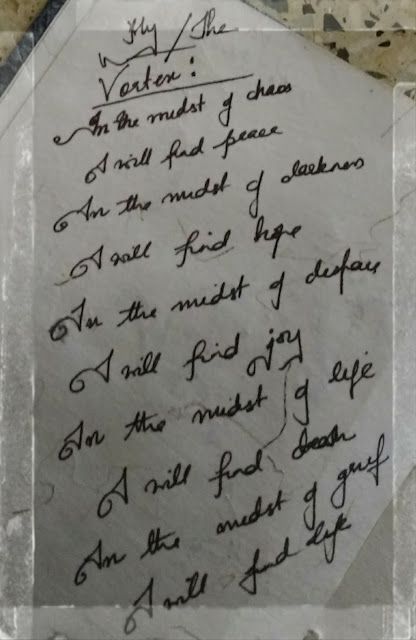 My / The
Vortex :
In the midst of chaos
I will find peace
In the midst of darkness
I will find hope
In the midst of despair
I will find joy
In the midst of life
I will find death
In the midst of grief
I will find life